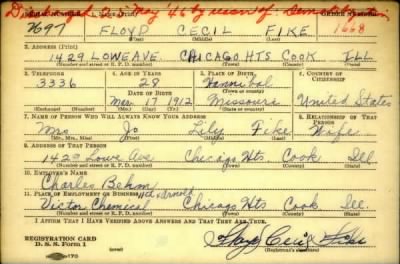 Discharged 2 May 46 by reason of Demobilization
SERIAL NUMBER 1. NAME (Print) ORDER NUMBER
N697 FLOYD CECIL FIKE 1668
(First) (Middle) (Last)
2. ADDRESS (Print)
1429 LOWE AVE CHICAGO HTS COOK ILL
(Number and street or R. F. D. number) (Town) (County) (State)
3. TELEPHONE 4. AGE IN YEARS 5. PLACE OF BIRTH 6. COUNTRY OF CITIZENSHIP
3336 29 Hannibal
DATE OF BIRTH (Town or county)
Mar 17 1912 Missouri United States
(Exchange) (Number) (Mo.) (Day) (Yr.) (State or country)
7. NAME OF PERSON WHO WILL ALWAYS KNOW YOUR ADDRESS 8. RELATIONSHIP OF THAT PERSON
Mrs Jo Lily Fike Wife
(Mr., Mrs., Miss) (First) (Middle) (Last)
9. ADDRESS OF THAT PERSON
1429 Lowe Ave Chicago Hts. Cook Ill
(Number and street or R. F. D. number) (Town) (County) (State)
10. EMPLOYER'S NAME
Charles Behm
11. PLACE OF EMPLOYMENT OR BUSINESS Arnold
Victor Chemical Chicago Hts Cook Ill.
(Number and street or R. F. D. number) (Town) (County) (State)
I AFFIRM THAT I HAVE VERIFIED ABOVE ANSWERS AND THAT THEY ARE TRUE.
REGISTRATION CARD
D. S. S. Form 1 (over) Floyd Cecil Fike
(Registrant's signature)